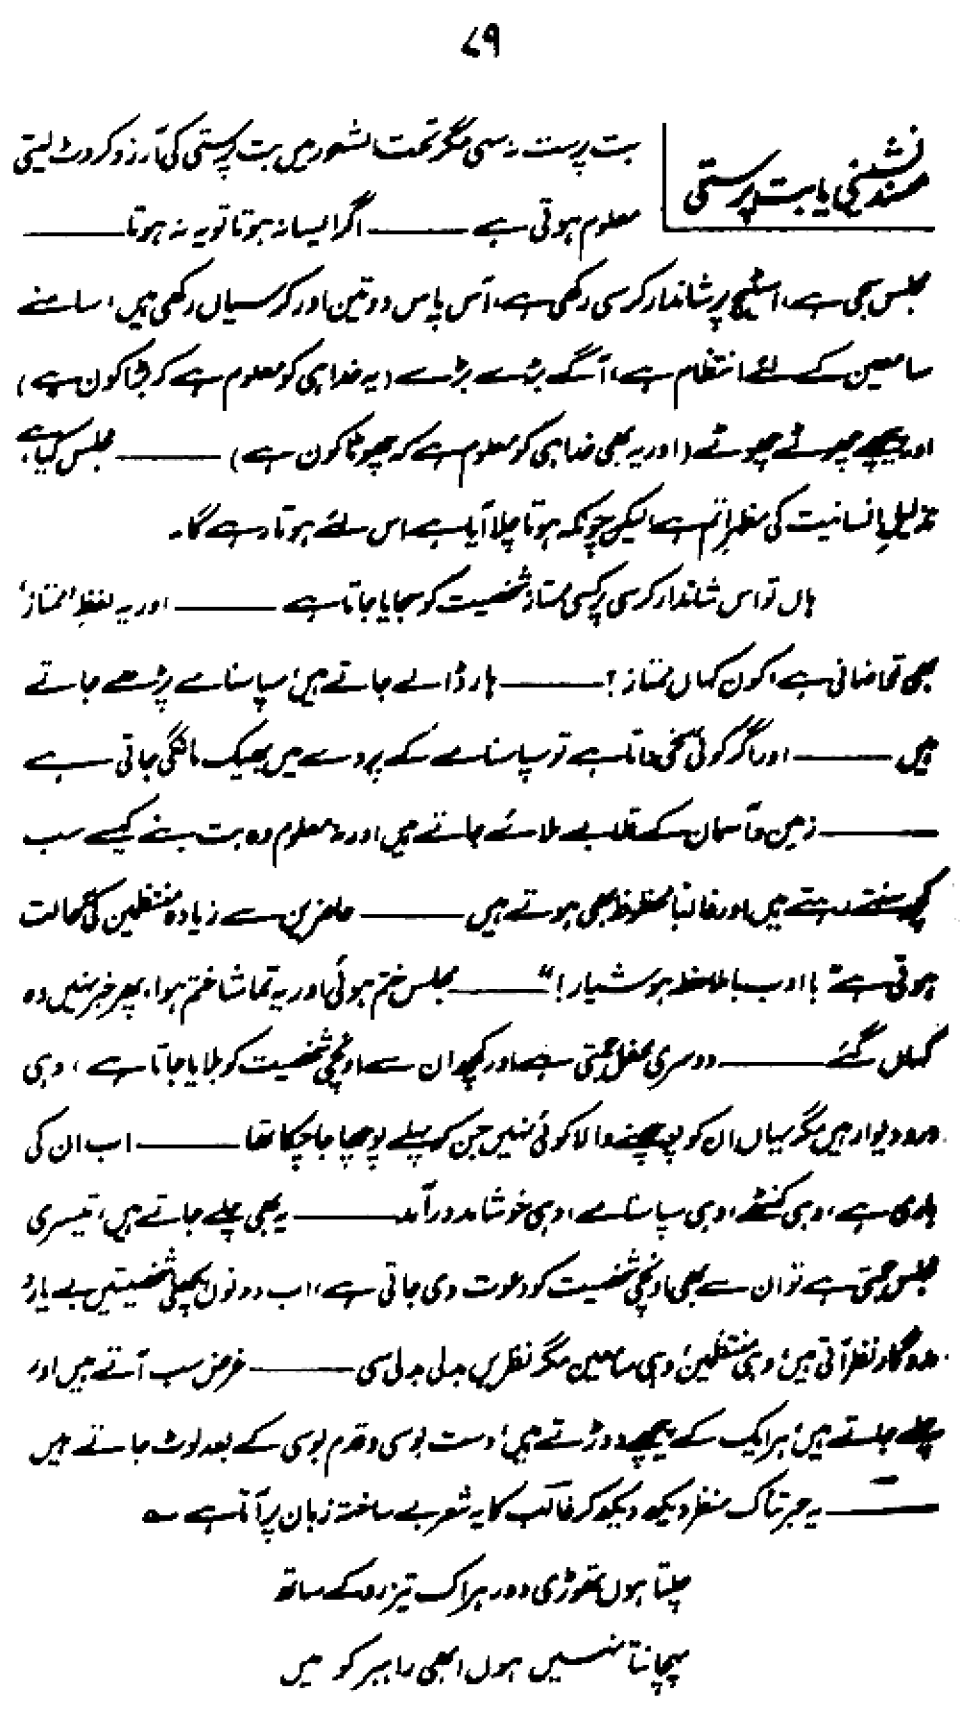 ۷۹
مسند نشینی یا بت پرستی
بت پرست نہ سہی مگر تحت الشعور میں بت پرستی کی آرزو کروٹ لیتی
معلوم ہوتی ہے ——— اگر ایسا نہ ہوتا تو یہ نہ ہوتا ———
مجلس سجی ہے، اسٹیج پر شاندار کرسی رکھی ہے، آس پاس دو تین اور کرسیاں رکھی ہیں، سامنے
سامعین کے لئے انتظام ہے، آگے بڑے بڑے (یہ خدا ہی کو معلوم ہے کہ بڑا کون ہے)
اور پیچھے چھوٹے چھوٹے (اور یہ بھی خدا ہی کو معلوم ہے کہ چھوٹا کون ہے) ——— مجلس کیا ہے
تذلیلِ انسانیت کی مظہرِ اتم ہے لیکن چونکہ ہوتا چلا آیا ہے اس لئے ہوتا رہے گا۔
ہاں تو اس شاندار کرسی پر کسی ممتاز شخصیت کو سجایا جاتا ہے ——— اور یہ لفظِ ’ممتاز‘
بھی تو اضافی ہے، کون کہاں ممتاز؟ ——— ہار ڈالے جاتے ہیں، سپاسنامے پڑھے جاتے
ہیں ——— اور اگر کوئی سخی داتا ہے تو سپاسنامے کے پردے میں بھیک مانگی جاتی ہے
——— زمین و آسمان کے قلابے ملائے جاتے ہیں اور نہ معلوم وہ بت بنے کیسے سب
کچھ سنتے رہتے ہیں اور غالباً محظوظ بھی ہوتے ہیں ——— حاضرین سے زیادہ منتظمین کی حالت
ہوتی ہے "با ادب با ملاحظہ ہوشیار!" ——— مجلس ختم ہوئی اور یہ تماشا ختم ہوا، پھر خبر نہیں وہ
کہاں گئے ——— دوسری محفل جمتی ہے اور کچھ ان سے اونچی شخصیت کو بلایا جاتا ہے، وہی
در و دیوار ہیں مگر یہاں ان کو پوچھنے والا کوئی نہیں جن کو پہلے پوچھا جا چکا تھا ——— اب ان کی
باری ہے، وہی کنٹھے، وہی سپاسنامے، وہی خوشامد درآمد ——— یہ بھی چلے جاتے ہیں، تیسری
مجلس جمتی ہے تو ان سے بھی اونچی شخصیت کو دعوت دی جاتی ہے، اب دونوں پچھلی شخصیتیں بے یار و
مددگار نظر آتی ہیں، وہی منتظمین، وہی سامعین مگر نظریں بدلی بدلی سی ——— غرض سب آتے ہیں اور
چلے جاتے ہیں، ہر ایک کے پیچھے دوڑتے ہیں، دست بوسی و قدم بوسی کے بعد لوٹ جاتے ہیں
——— یہ عبرتناک منظر دیکھ دیکھ کر غالب کا یہ شعر بے ساختہ زبان پر آتا ہے ؎
چلتا ہوں تھوڑی دور ہر اک تیز رو کے ساتھ
پہچانتا نہیں ہوں ابھی راہبر کو میں